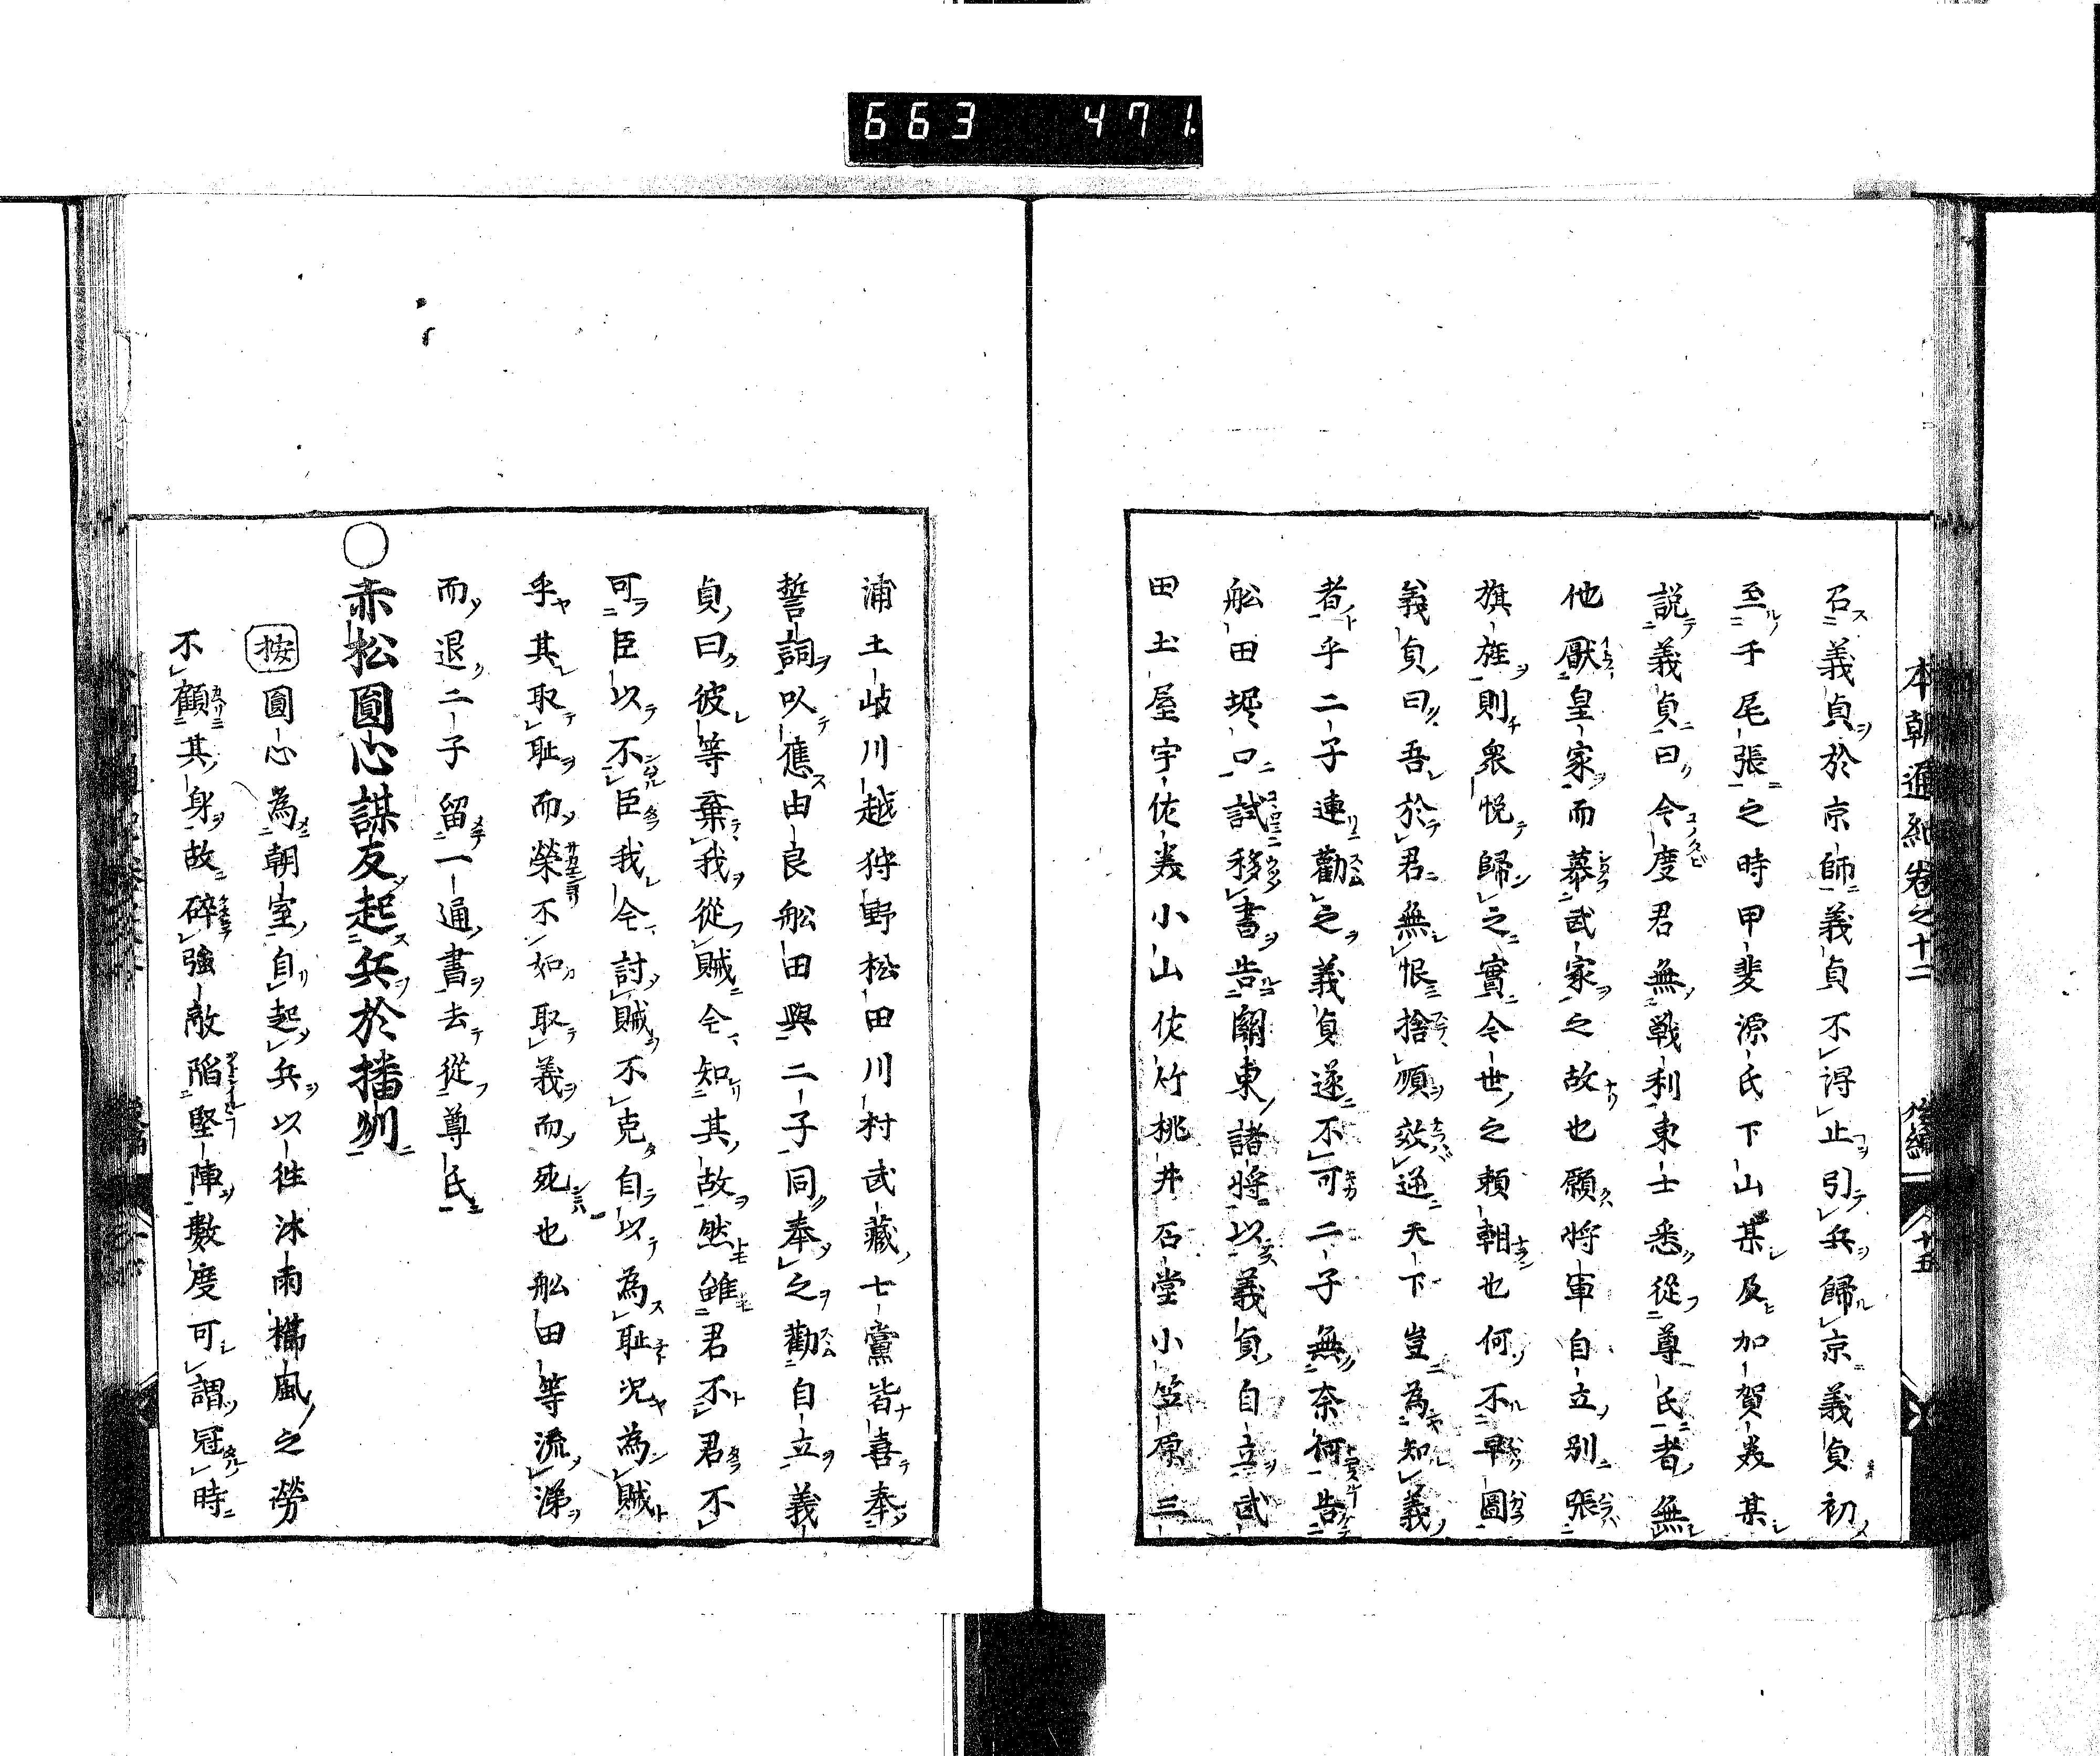 663 471.
本朝通紀卷之十二 後編 十五
召義貞於京師義貞不得止引兵歸京義貞初
至千尾張之時甲斐源氏下山某及加賀美某
説義貞曰今度君無戦利東士悉從尊氏者無
他厭皇家而慕武家之故也願將軍自立別張
旗旌則衆悦歸之實今世之頼朝也何不早圖
義貞曰吾於君無恨捨順效逆天下豈為知義
者乎二子連勸之義貞遂不可二子無奈何告
舩田堀口試移書告關東諸將以義貞自立武
田土屋宇佐美小山佐竹桃井石堂小笠原三
浦土岐川越狩野松田川村武藏七黨皆喜奉
誓詞以應由良舩田與二子同奉之勸自立義
貞曰彼等棄我從賊今知其故然雖君不君不
可臣以不臣我今討賊不克自以為耻况為賊
乎其取耻而榮不如取義而死也舩田等流涕
而退二子留一通書去從尊氏
○赤松圓心謀友起兵於播州
按圓心為朝室自起兵以往沐雨櫛風之勞
不顧其身故碎強敵陷堅陣數度可謂冠時